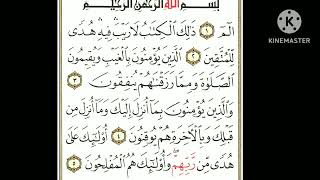 بِسْمِ اللَّهِ الرَّحْمَٰنِ الرَّحِيمِ
الٓمٓ ١ ذَٰلِكَ الْكِتَٰبُ لَا رَيْبَ ۛ فِيهِ ۛ هُدًى
لِّلْمُتَّقِينَ ٢ الَّذِينَ يُؤْمِنُونَ بِالْغَيْبِ وَيُقِيمُونَ
الصَّلَوٰةَ وَمِمَّا رَزَقْنَٰهُمْ يُنفِقُونَ ٣
وَالَّذِينَ يُؤْمِنُونَ بِمَا أُنزِلَ إِلَيْكَ وَمَا أُنزِلَ مِن
قَبْلِكَ وَبِالْآخِرَةِ هُمْ يُوقِنُونَ ٤ أُولَٰئِكَ عَلَىٰ
هُدًى مِّن رَّبِّهِمْ ۖ وَأُولَٰئِكَ هُمُ الْمُفْلِحُونَ ٥
KINEMASTER